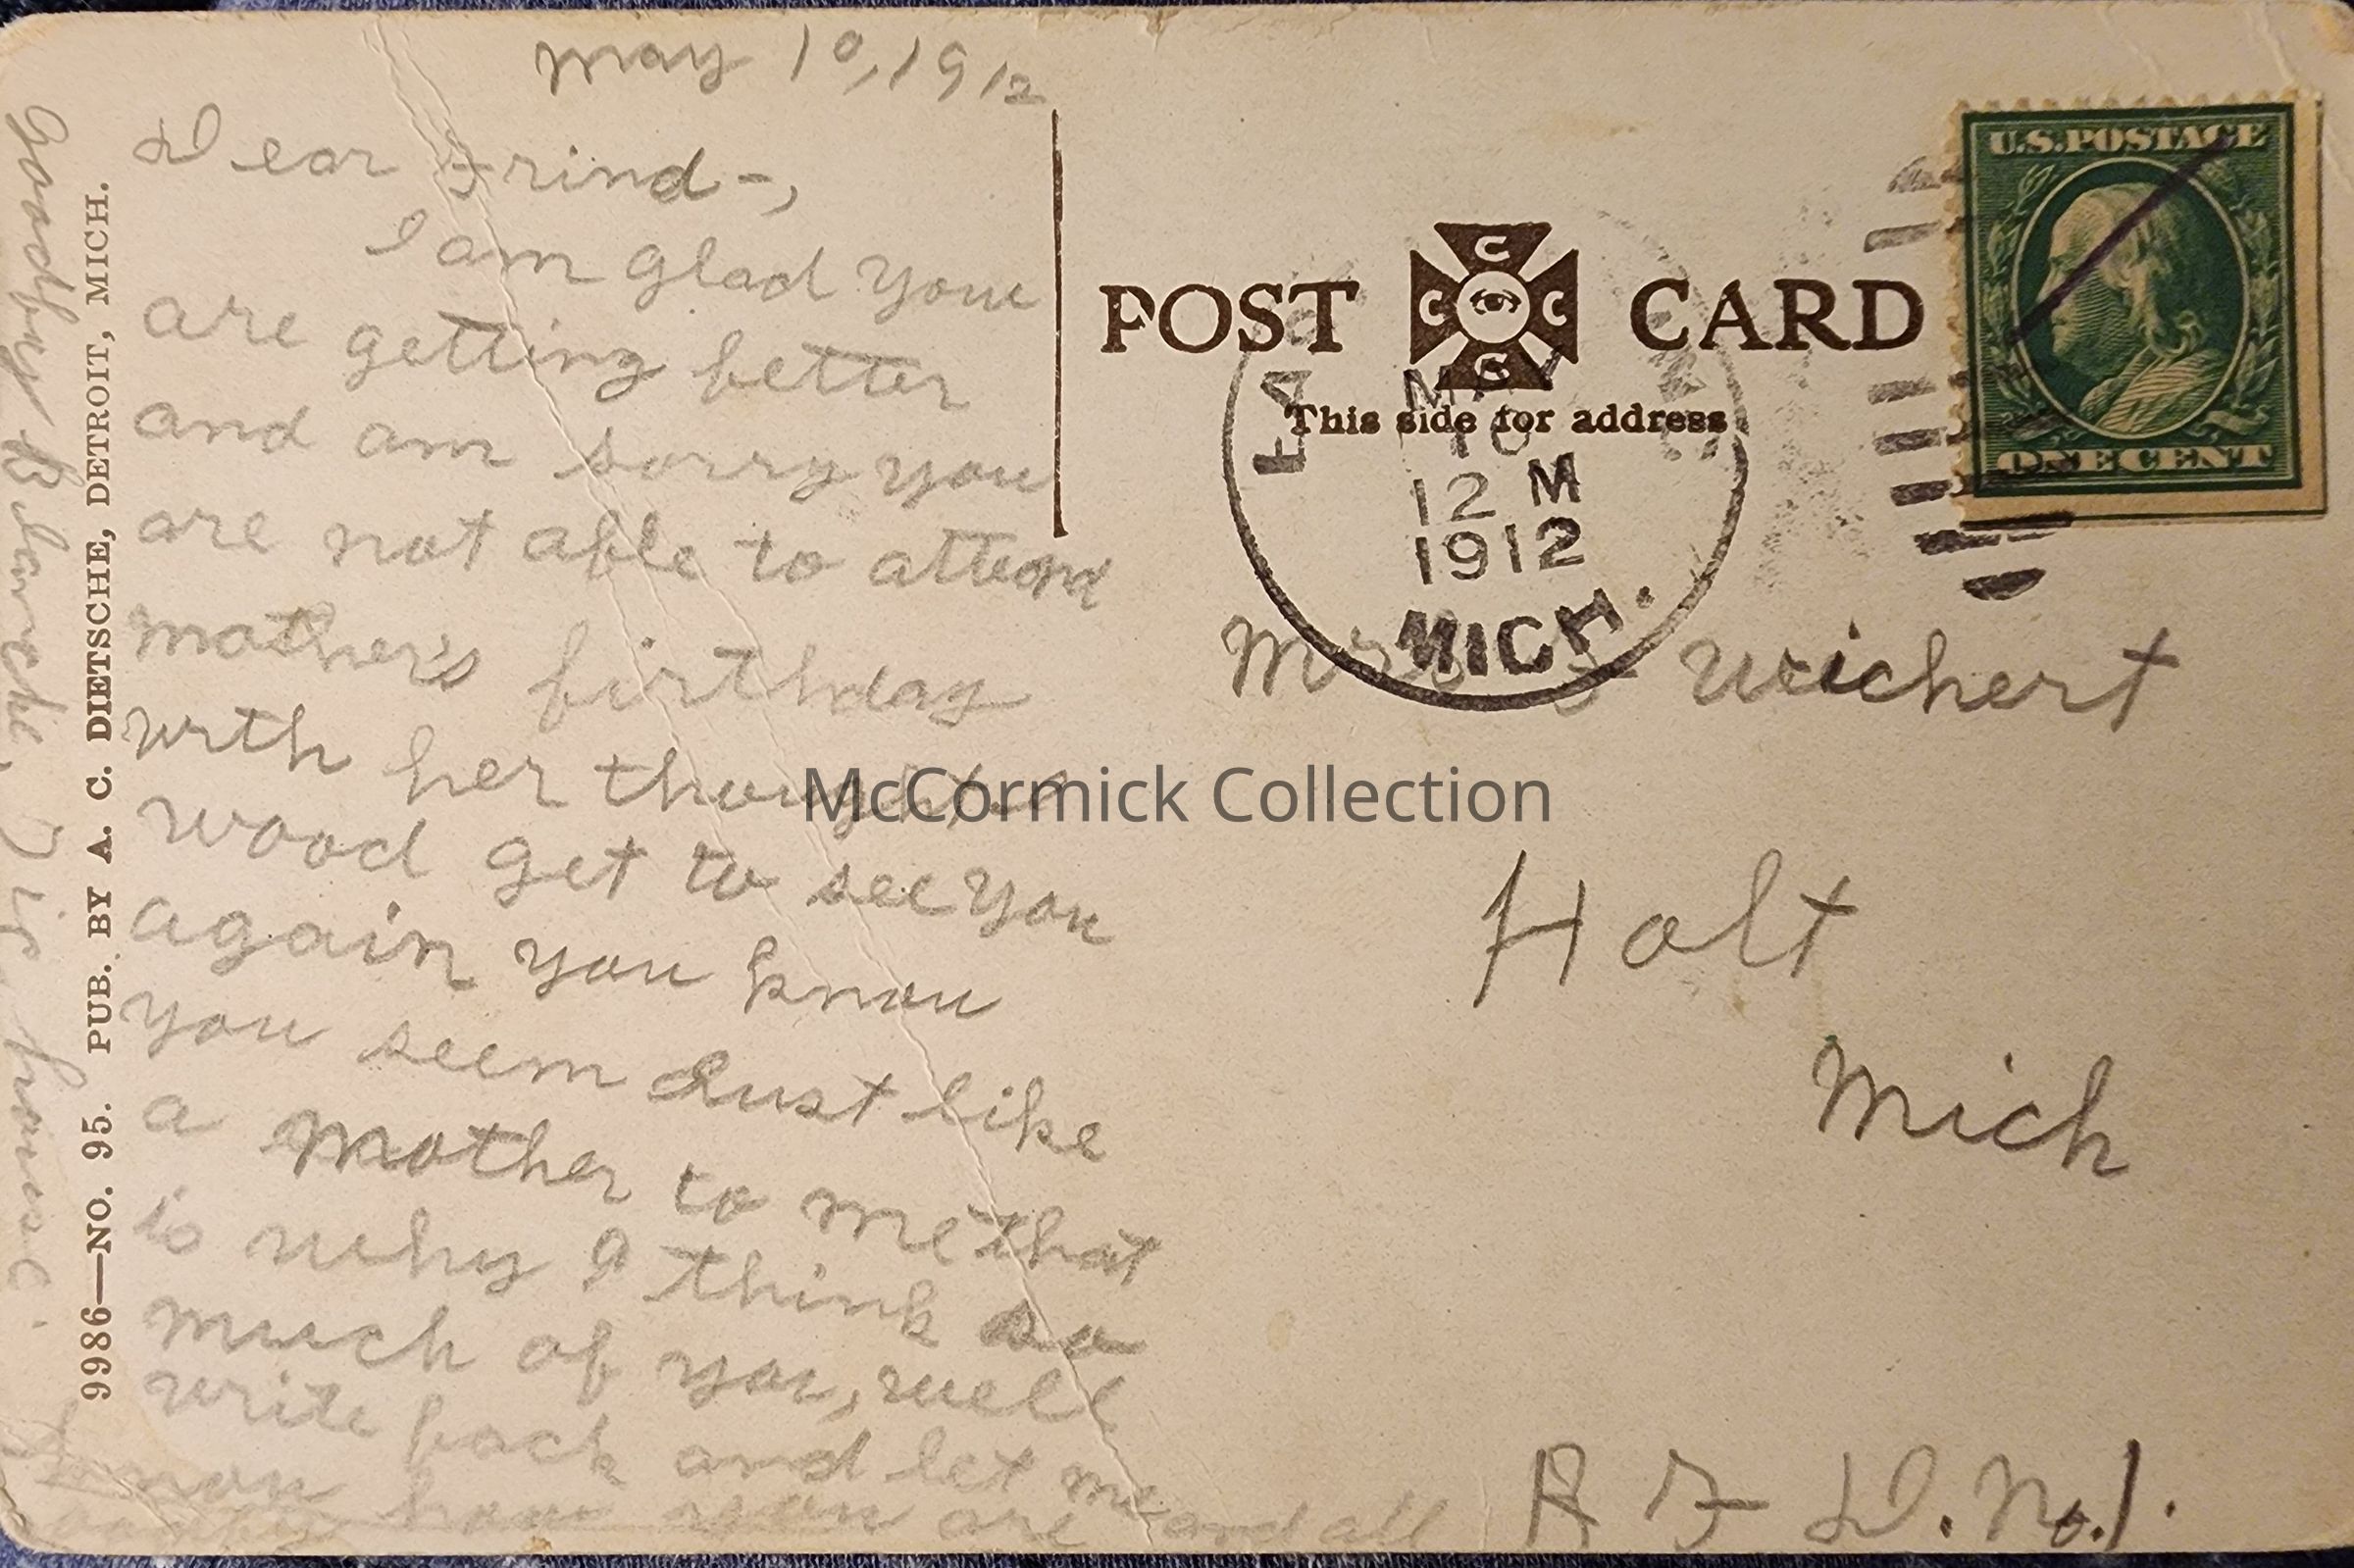 May 10, 1912
Dear Frind-,
I am glad you
are getting better
and am sorry you
are not able to attend
mother's birthday
with her thought I
wood get to see you
again you know
you seem Just like
a Mother to me that
is why I think so
much of you, well
write back and let me
know how you are and all
Goodbye Blanche
9986—NO. 95. PUB. BY A. C. DIETSCHE, DETROIT, MICH.
POST CARD
C C C C
This side for address
U.S. POSTAGE
ONE CENT
MAY
10
12 M
1912
MICH.
Mrs Weichert
Holt
Mich
R F D. No. 1.
McCormick Collection